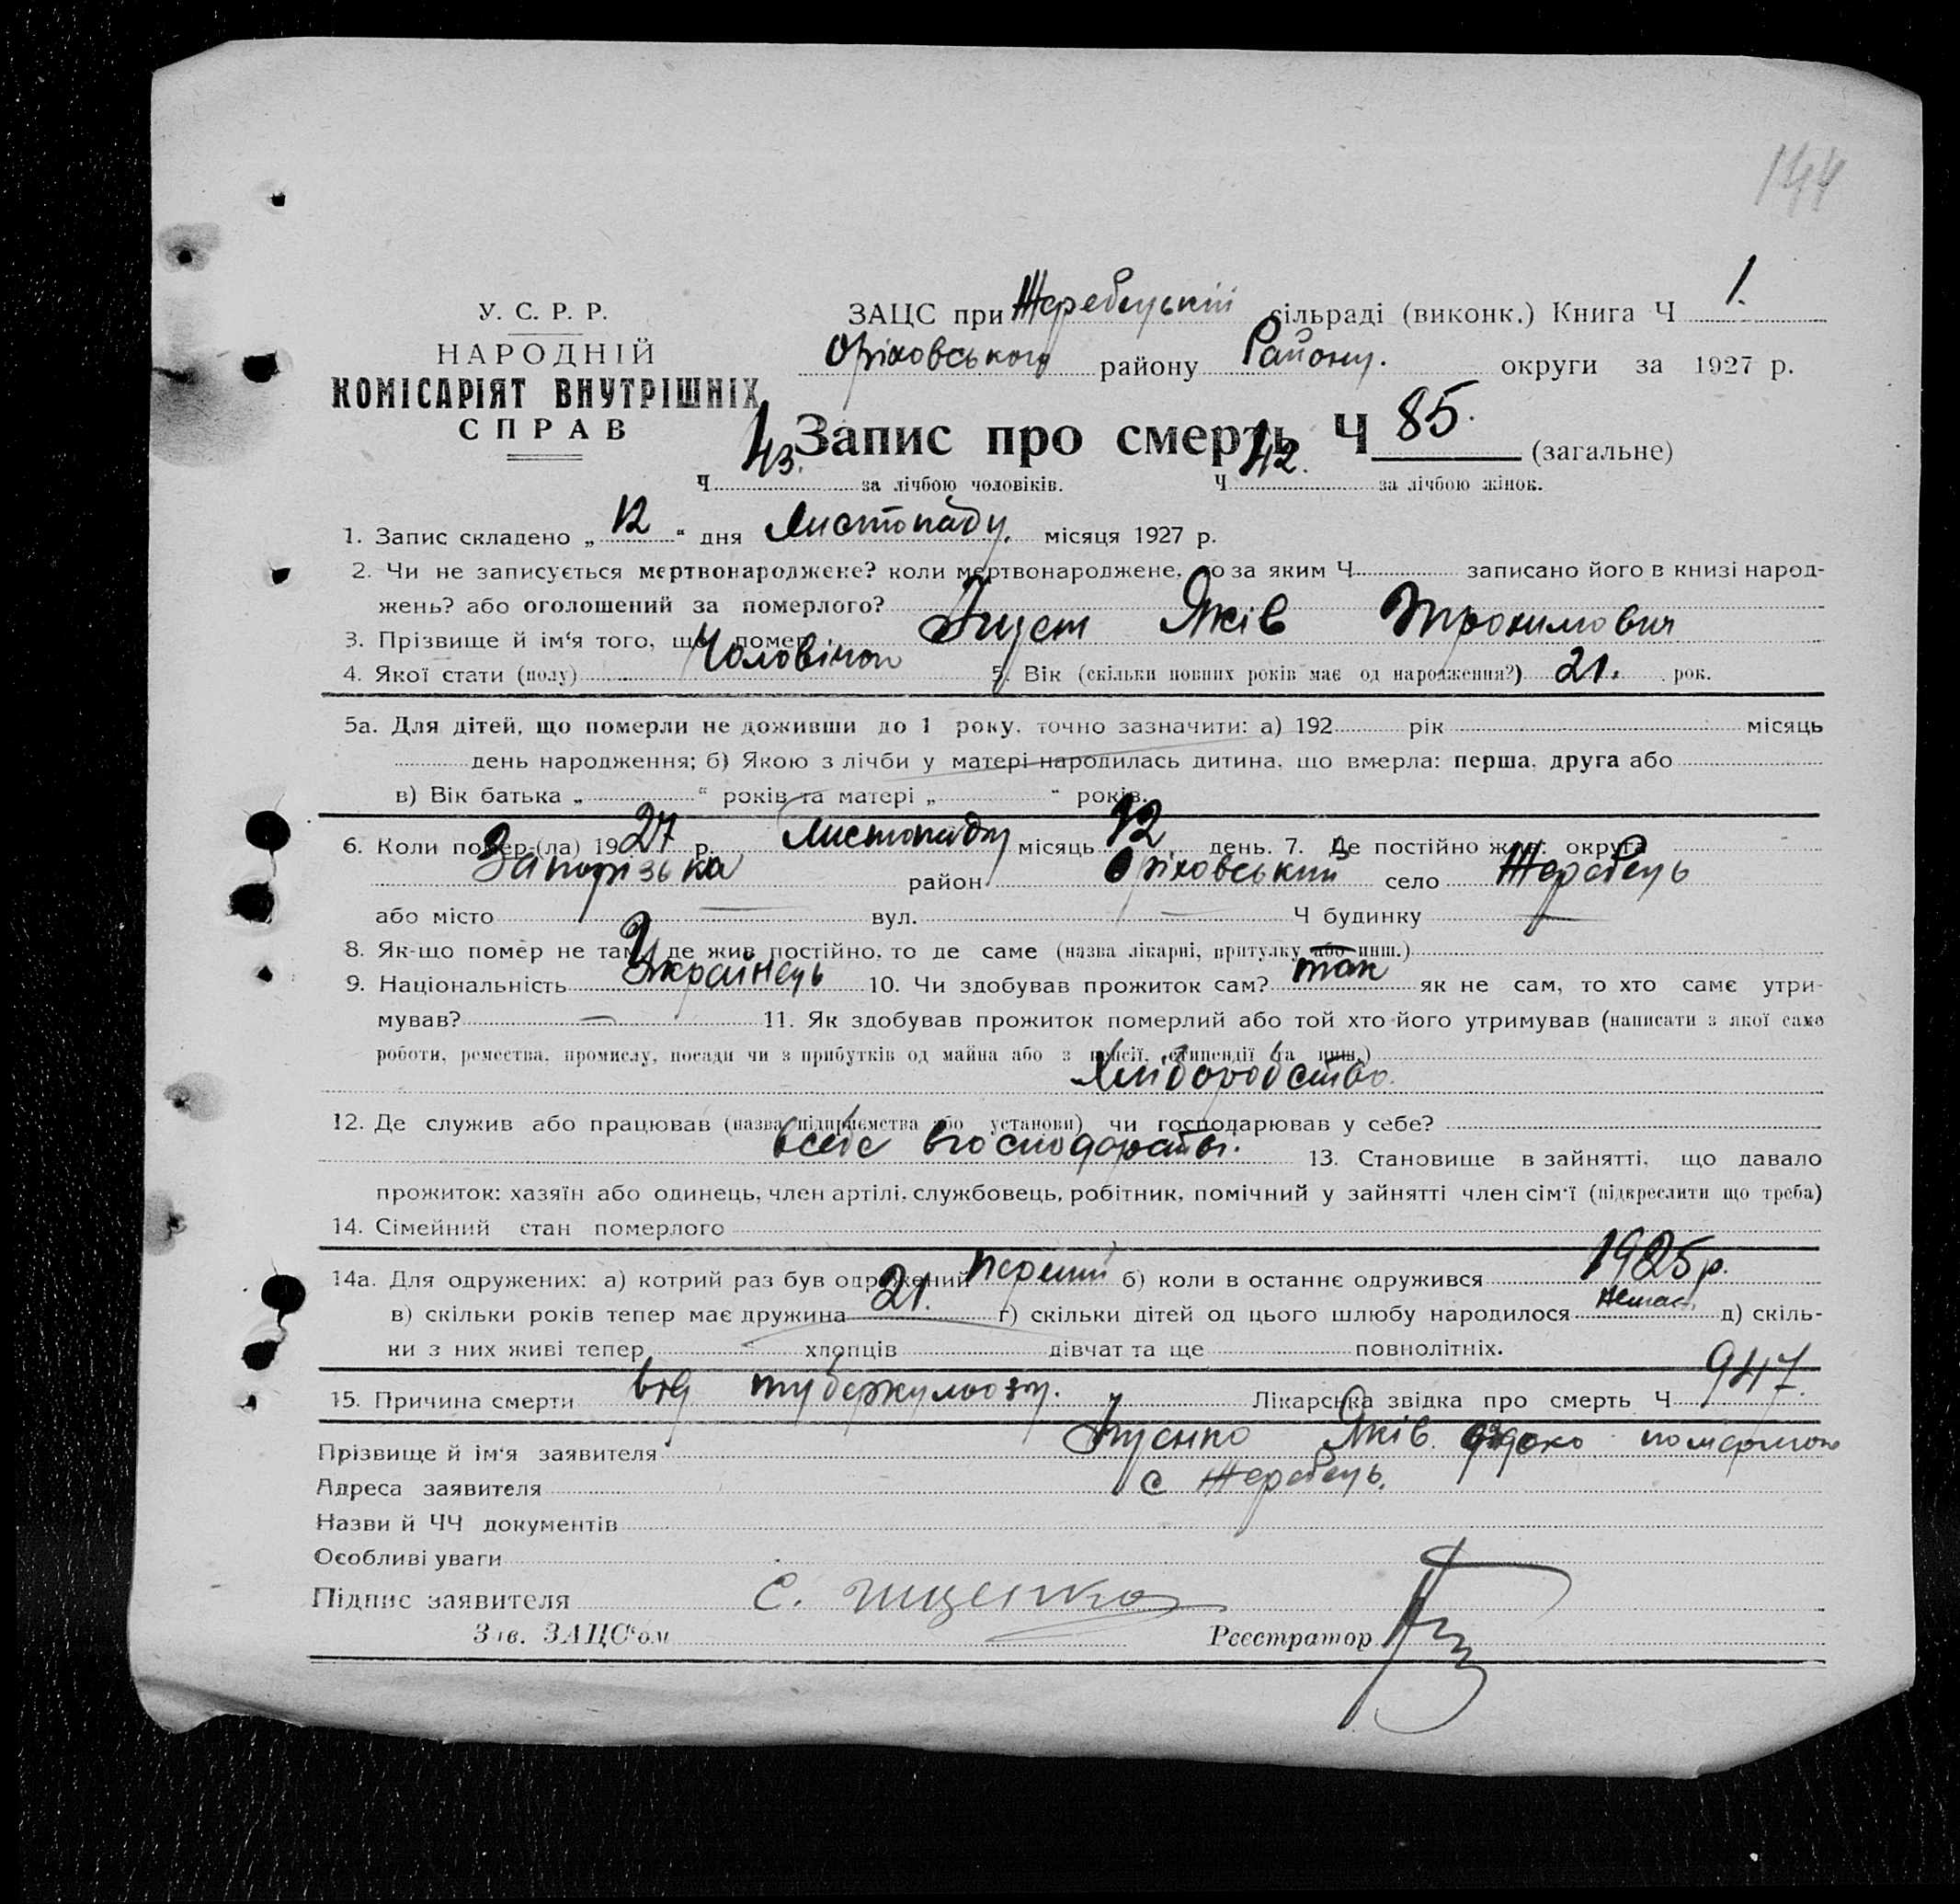 144
У. С. Р. Р.
НАРОДНІЙ
КОМІСАРІЯТ ВНУТРІШНІХ
СПРАВ
ЗАЦС при Жеребецькій сільраді (виконк.) Книга Ч 1.
Оріховського району Району. округи за 1927 р.
Запис про смерть Ч 85. (загальне)
Ч 43. за лічбою чоловіків. Ч 42. за лічбою жінок.
1. Запис складено „ 12 “ дня Листопаду. місяця 1927 р.
2. Чи не записується мертвонароджене? коли мертвонароджене, то за яким Ч записано його в книзі народ-
жень? або оголошений за померлого?
3. Прізвище й ім‘я того, що помер Яків Трохимович
4. Якої стати (полу) Чоловічої 5. Вік (скільки повних років має од народження?) 21. рок.
5а. Для дітей, що померли не доживши до 1 року, точно зазначити: а) 192 рік місяць
день народження; б) Якою з лічби у матері народилась дитина, що вмерла: перша, друга або
в) Вік батька „ “ років та матері „ “ років.
6. Коли помер-(ла) 1927 р. листопаду місяць 12 день. 7. Де постійно жив: округа
Запорізька район Оріховський село Жеребець
або місто вул. Ч будинку
8. Як-що помер не там, де жив постійно, то де саме (назва лікарні, притулку або инш.)
9. Національність Українець 10. Чи здобував прожиток сам? так як не сам, то хто саме утри-
мував? 11. Як здобував прожиток померлий або той хто його утримував (написати з якої само
роботи, ремества, промислу, посади чи з прибутків од майна або з пенсії, стипендії та инш.)
Хліборобство.
12. Де служив або працював (назва підприємства або установи) чи господарював у себе?
всебе вгосподарстві. 13. Становище в зайнятті, що давало
прожиток: хазяїн або одинець, член артілі, службовець, робітник, помічний у зайнятті член сім‘ї (підкреслити що треба)
14. Сімейний стан померлого
14а. Для одружених: а) котрий раз був одружений перший б) коли в останнє одружився 1925 р.
в) скільки років тепер має дружина 21. г) скільки дітей од цього шлюбу народилося немає д) скіль-
ки з них живі тепер хлопців дівчат та ще повнолітніх.
15. Причина смерти від туберкульозу. Лікарська звідка про смерть Ч 947.
Прізвище й ім‘я заявителя Яків. дядько померлого
Адреса заявителя с Жеребець.
Назви й ЧЧ документів
Особливі уваги
Підпис заявителя
Зав. ЗАЦС‘ом Реєстратор